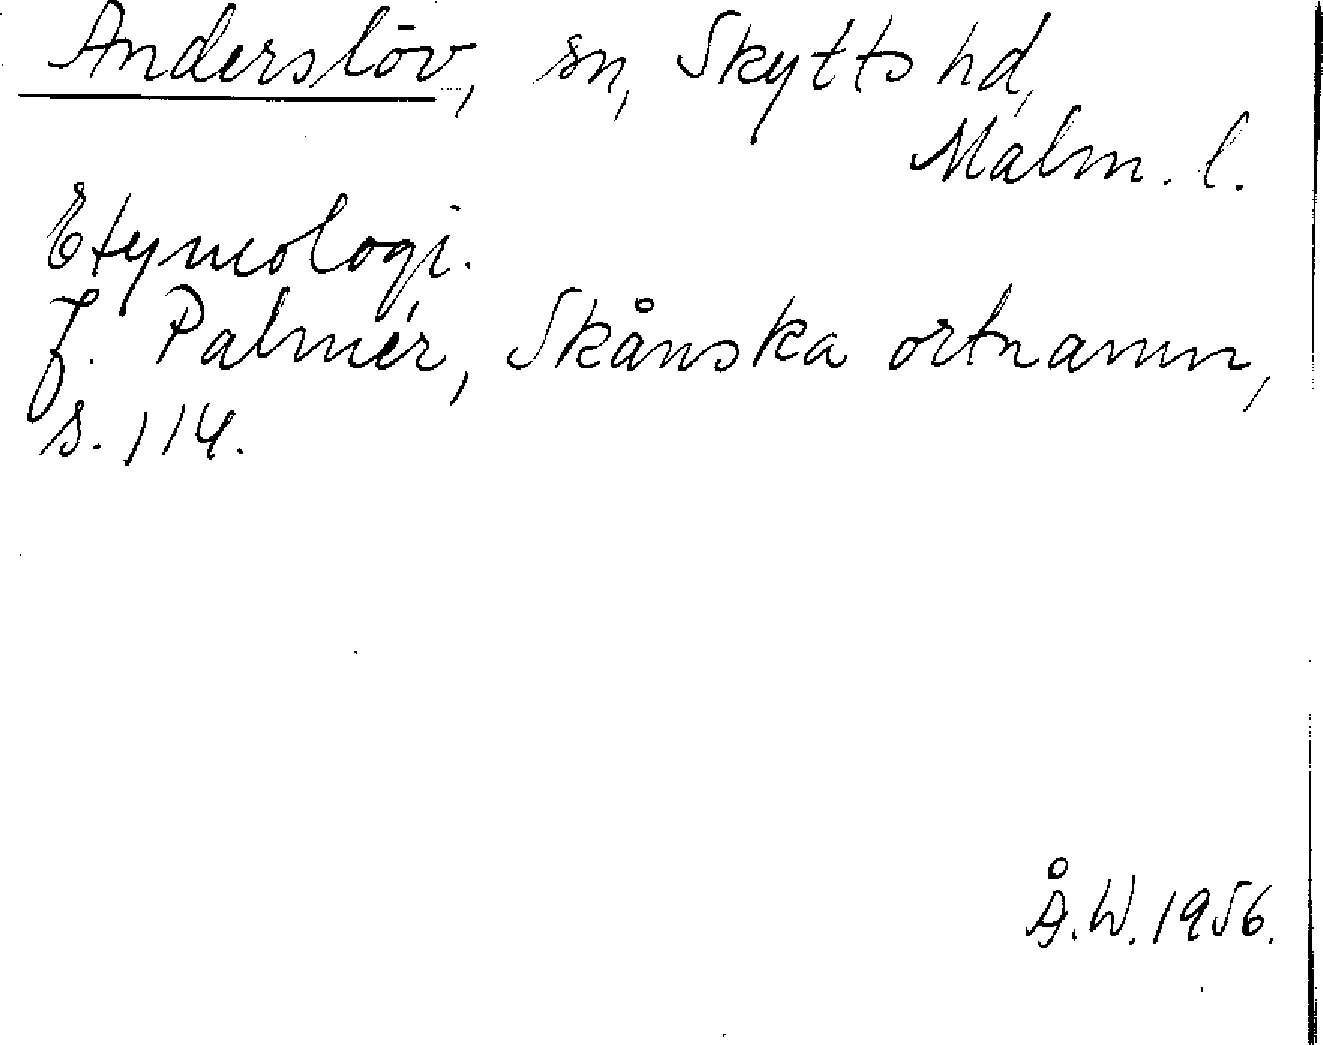 Anderslöv, sn, Skytts hd,
Malm. l.
Etymologi.
J. Palmér, Skånska ortnamn,
s. 114.
Å.W. 1956.